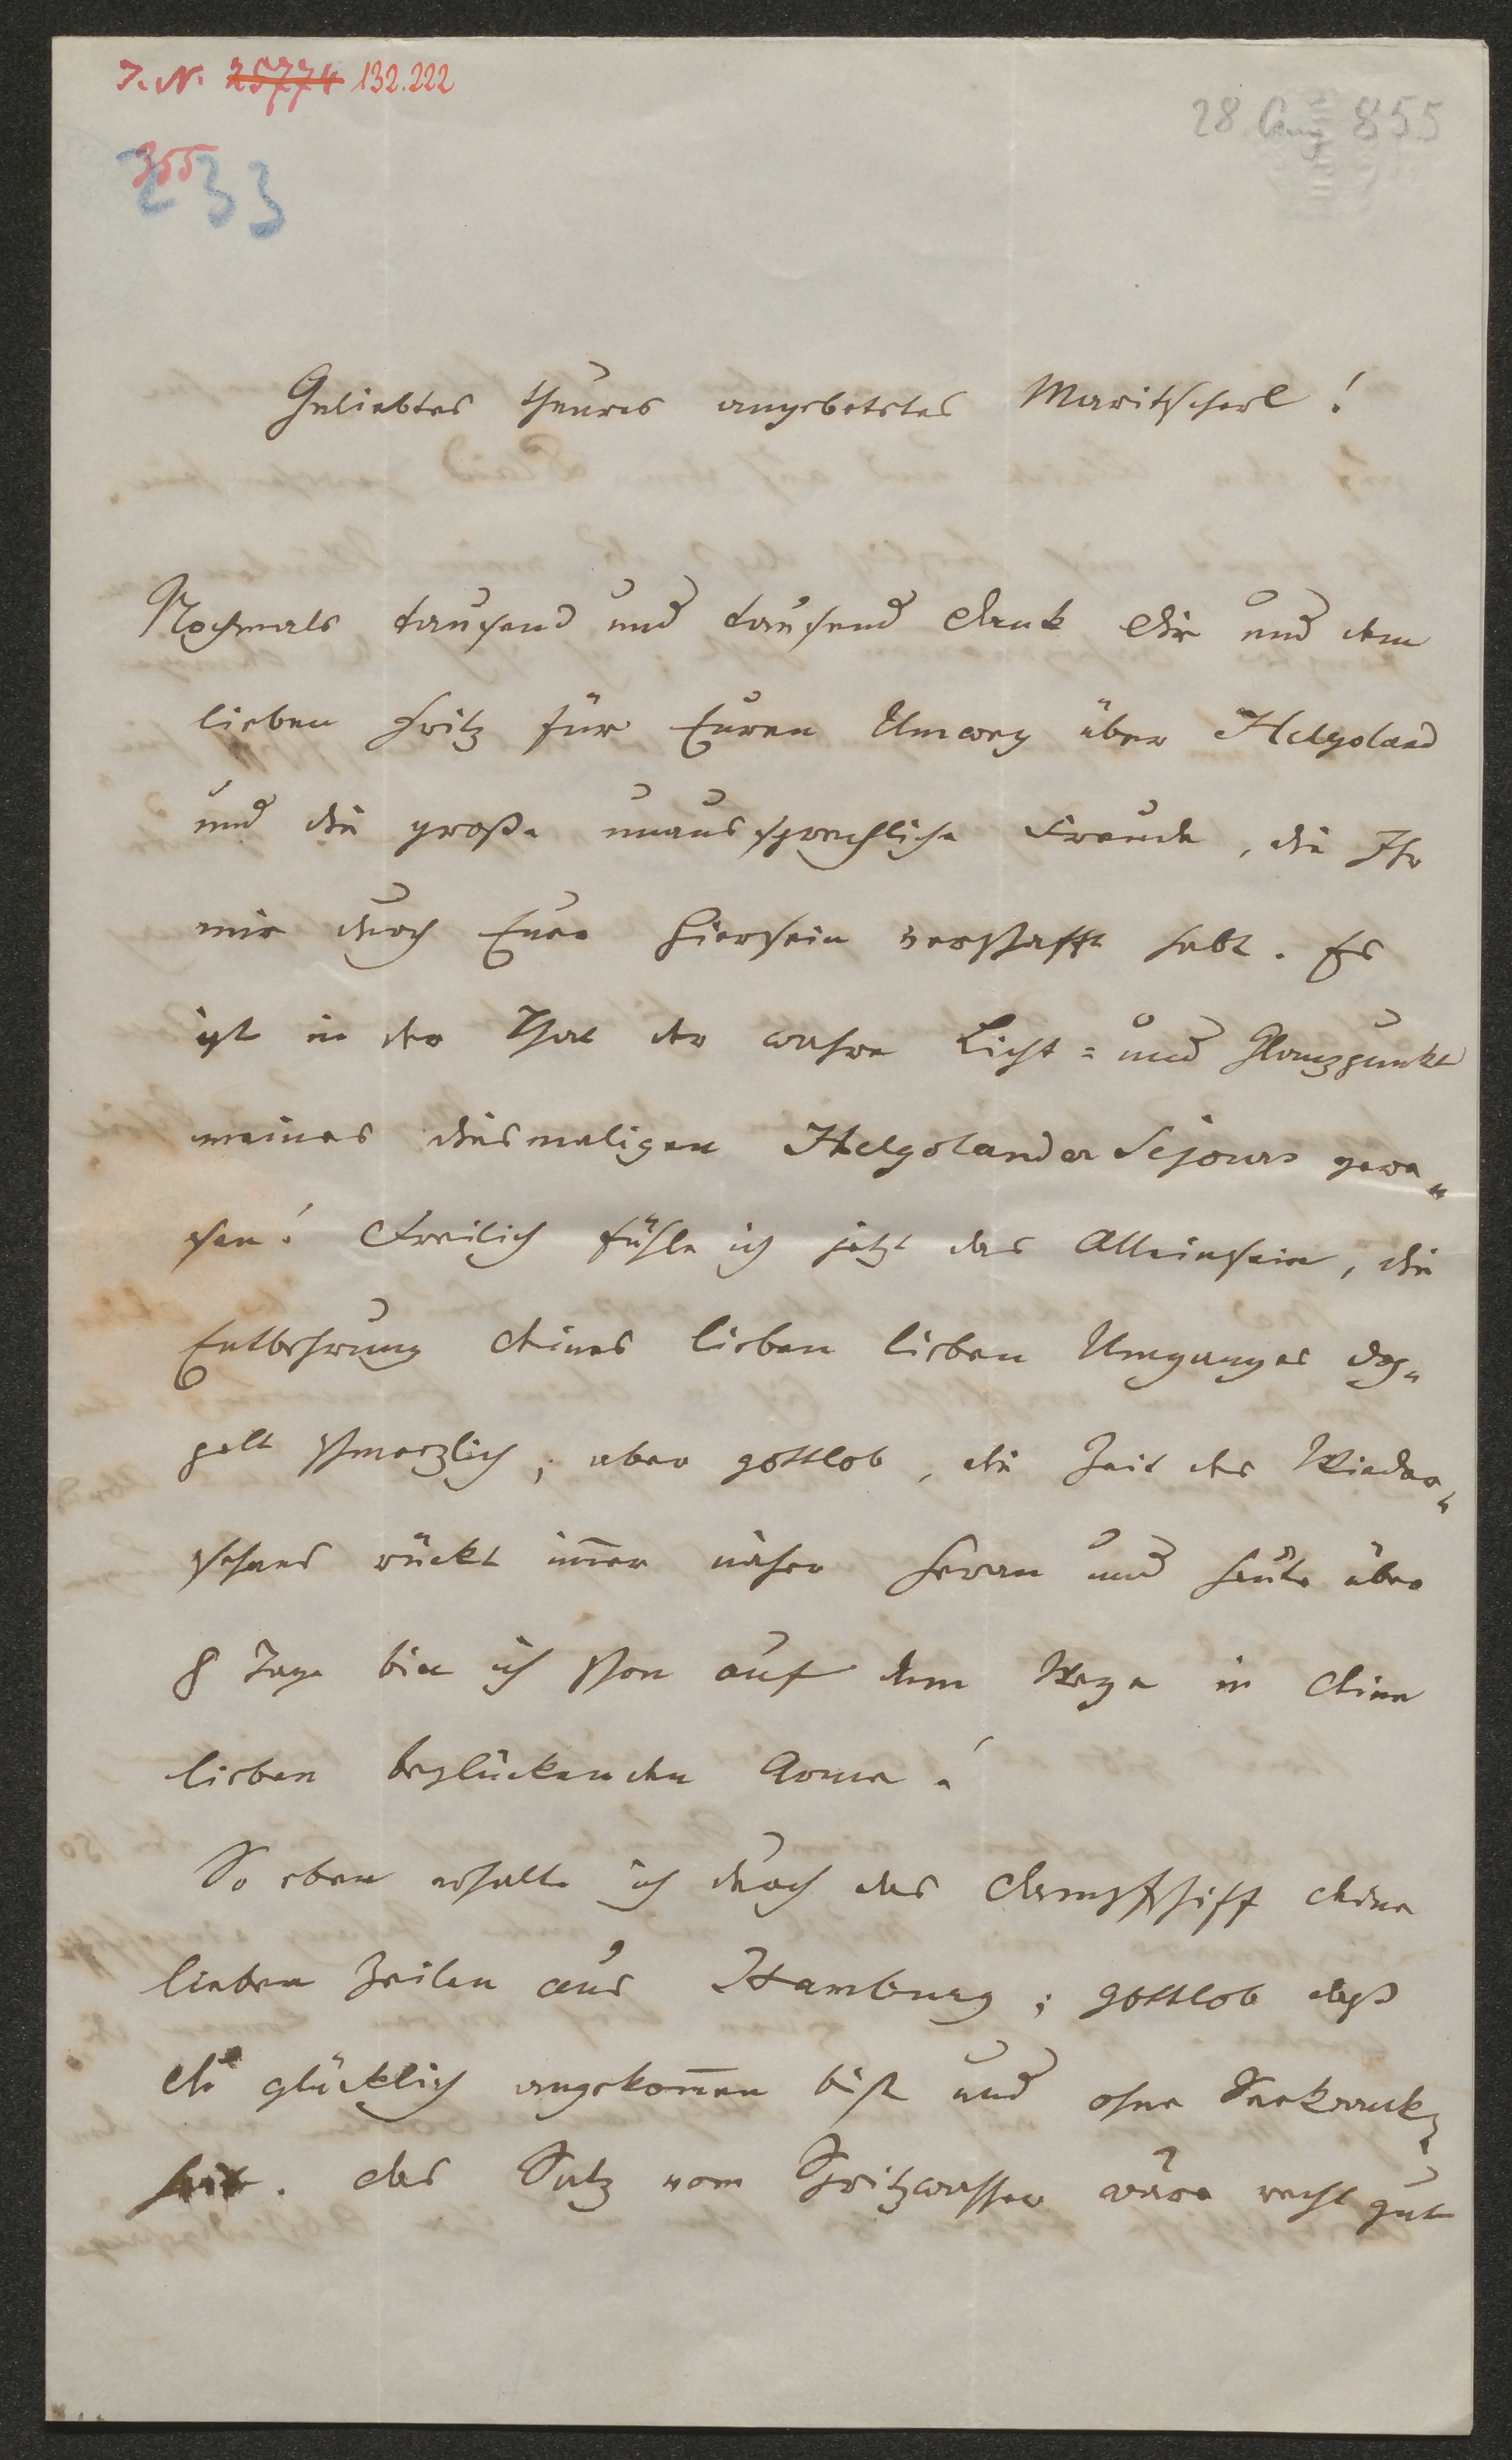 I. N. 25774 132.222
28 Aug 855
355
233
Geliebtes theures angebetetes Maritscherl!
Nochmals tausend und tausend Dank Dir und dem
lieben Fritz für Euren Umweg über Helgoland
und die große unaussprechliche Freude, die Ihr
mir durch Euer Hiersein verschafft habt. Es
ist in der That der wahre Licht= und Glanzpunkt
meines diesmaligen Helgolander Sejours gewe„
sen! Freilich fühle ich jetzt das Alleinsein, die
Entbehrung Deines lieben lieben Umganges dop„
pelt schmerzlich; aber gottlob, die Zeit des Wieder„
sehens rückt im̅er näher heran und heute über
8 Tage bin ich schon auf dem Wege in Deine
lieben beglückenden Arme!
So eben erhalte ich durch das Dampfschiff Deine
lieben Zeilen aus Hamburg; gottlob daß
Du glücklich angekom̅en bist und ohne Seekrank„
heit. Das Salz vom Spritzwasser wäre recht gut